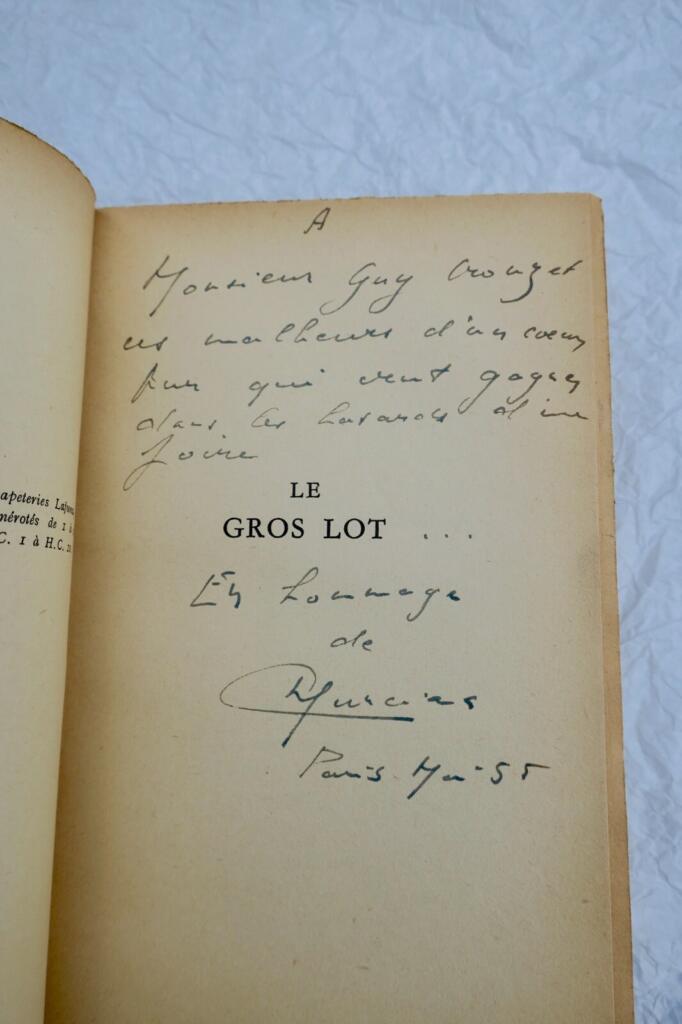 A
Monsieur Guy Crouzet
ces malheurs d'un coeur
pur qui veut gagner
dans les hasards d'une
foire
LE
GROS LOT ...
En hommage
de
Paris Mai 55
apeteries
mérotés de 1 à
C. 1 à H.C.